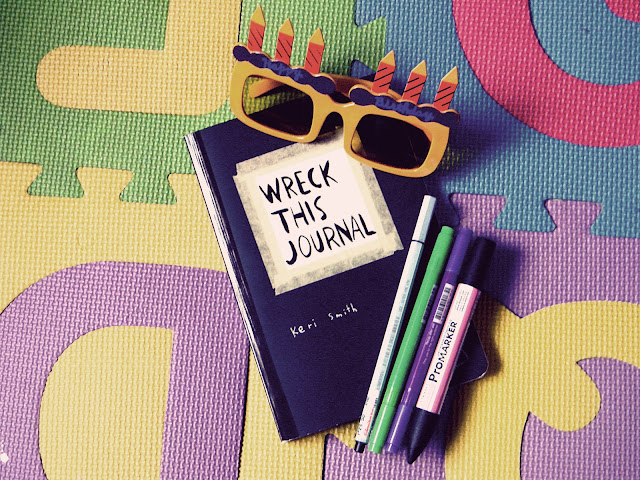 WRECK
THIS
JOURNAL
Keri Smith
PROMARKER